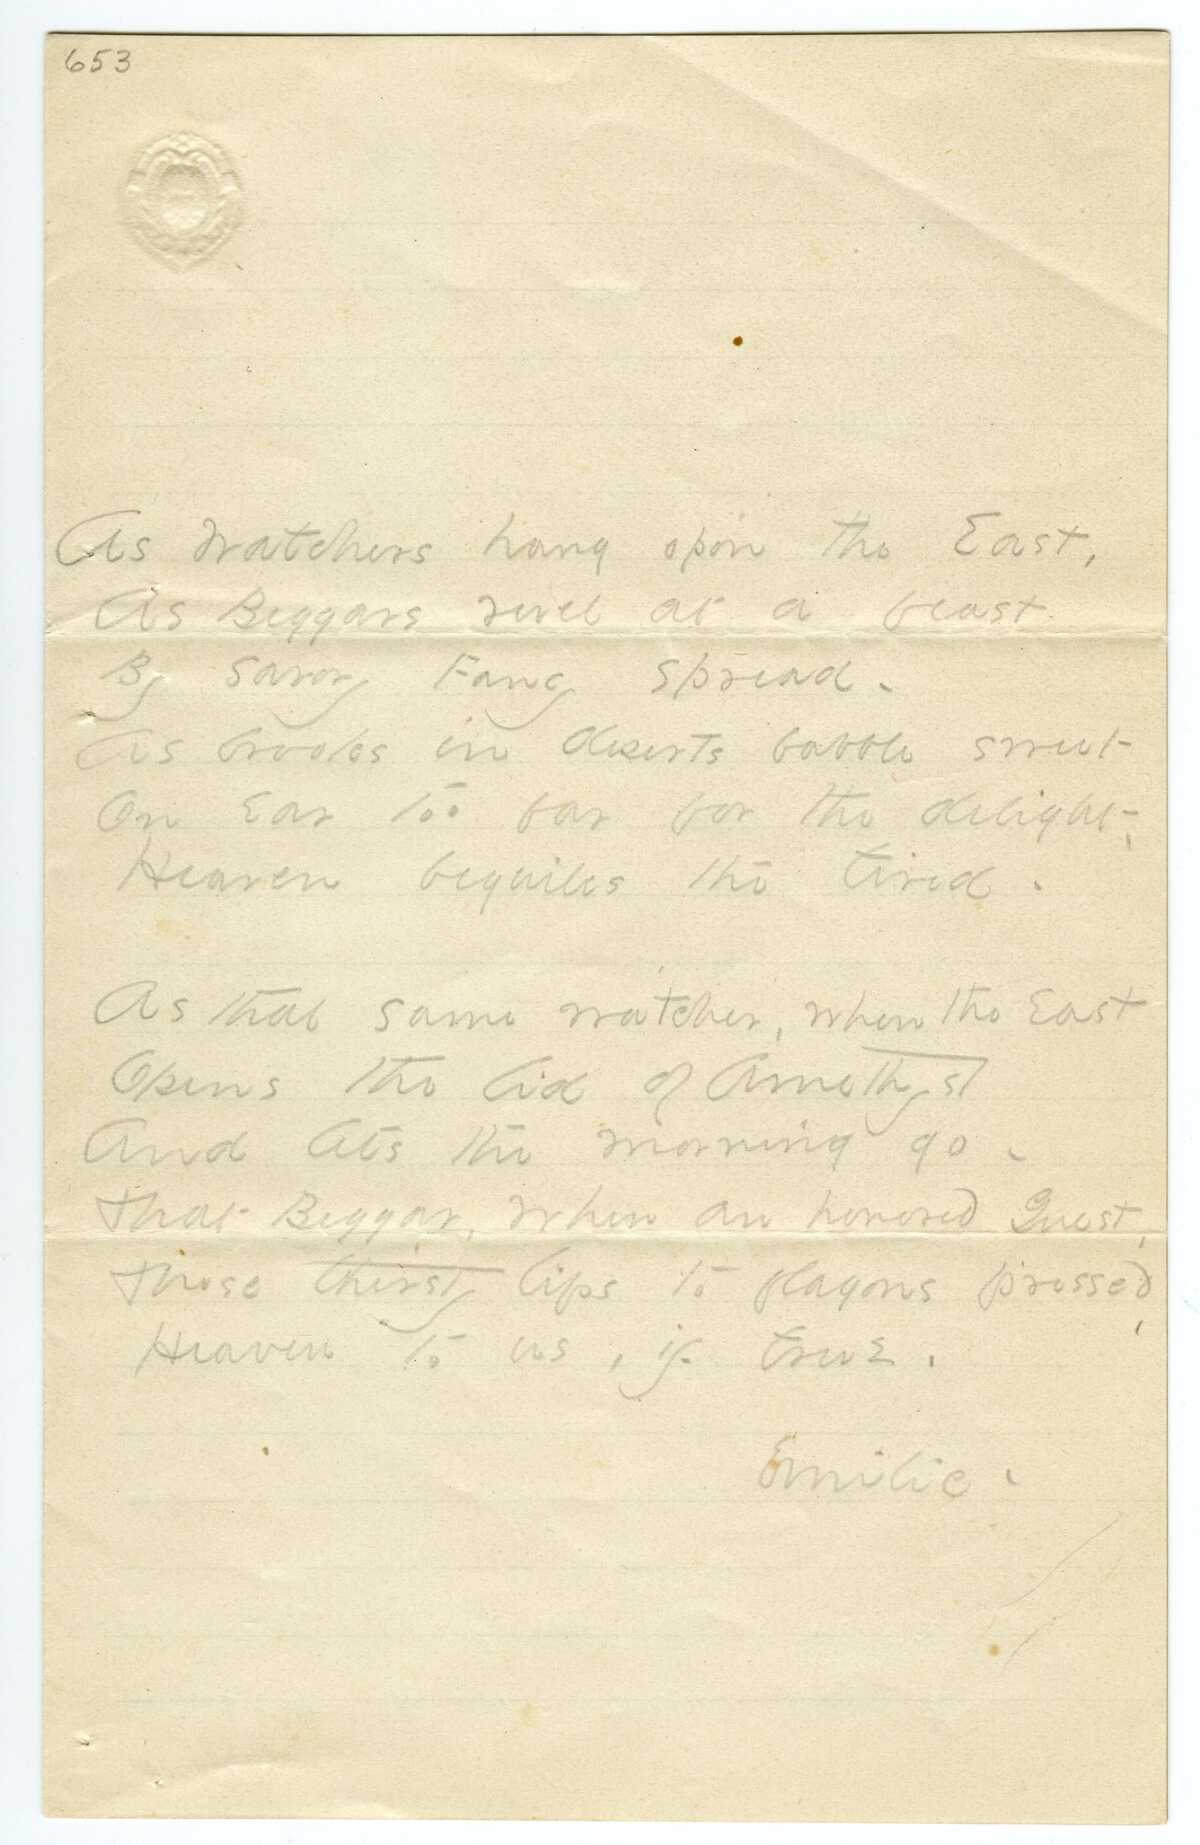 653
As Watchers hang upon the East,
As Beggars revel at a feast
By savory Fancy spread -
As brooks in deserts babble sweet
On Ear too far for the delight,
Heaven beguiles the tired.
As that same watcher, when the East
Opens the lid of Amethyst
And lets the morning go -
That Beggar, when an honored Guest,
Those thirsty lips to flagons pressed,
Heaven to us, if true.
Emilie -